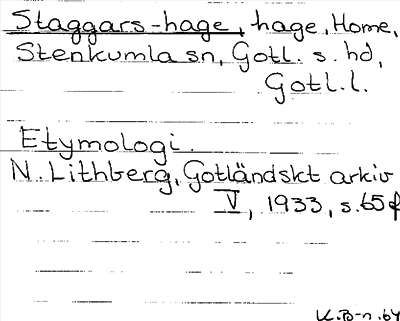 Staggars-hage, hage, Home,
Stenkumla sn, Gotl. s. hd,
Gotl. l.
Etymologi.
N. Lithberg, Gotländskt arkiv
V, 1933, s. 65 f
K. B-n. 64